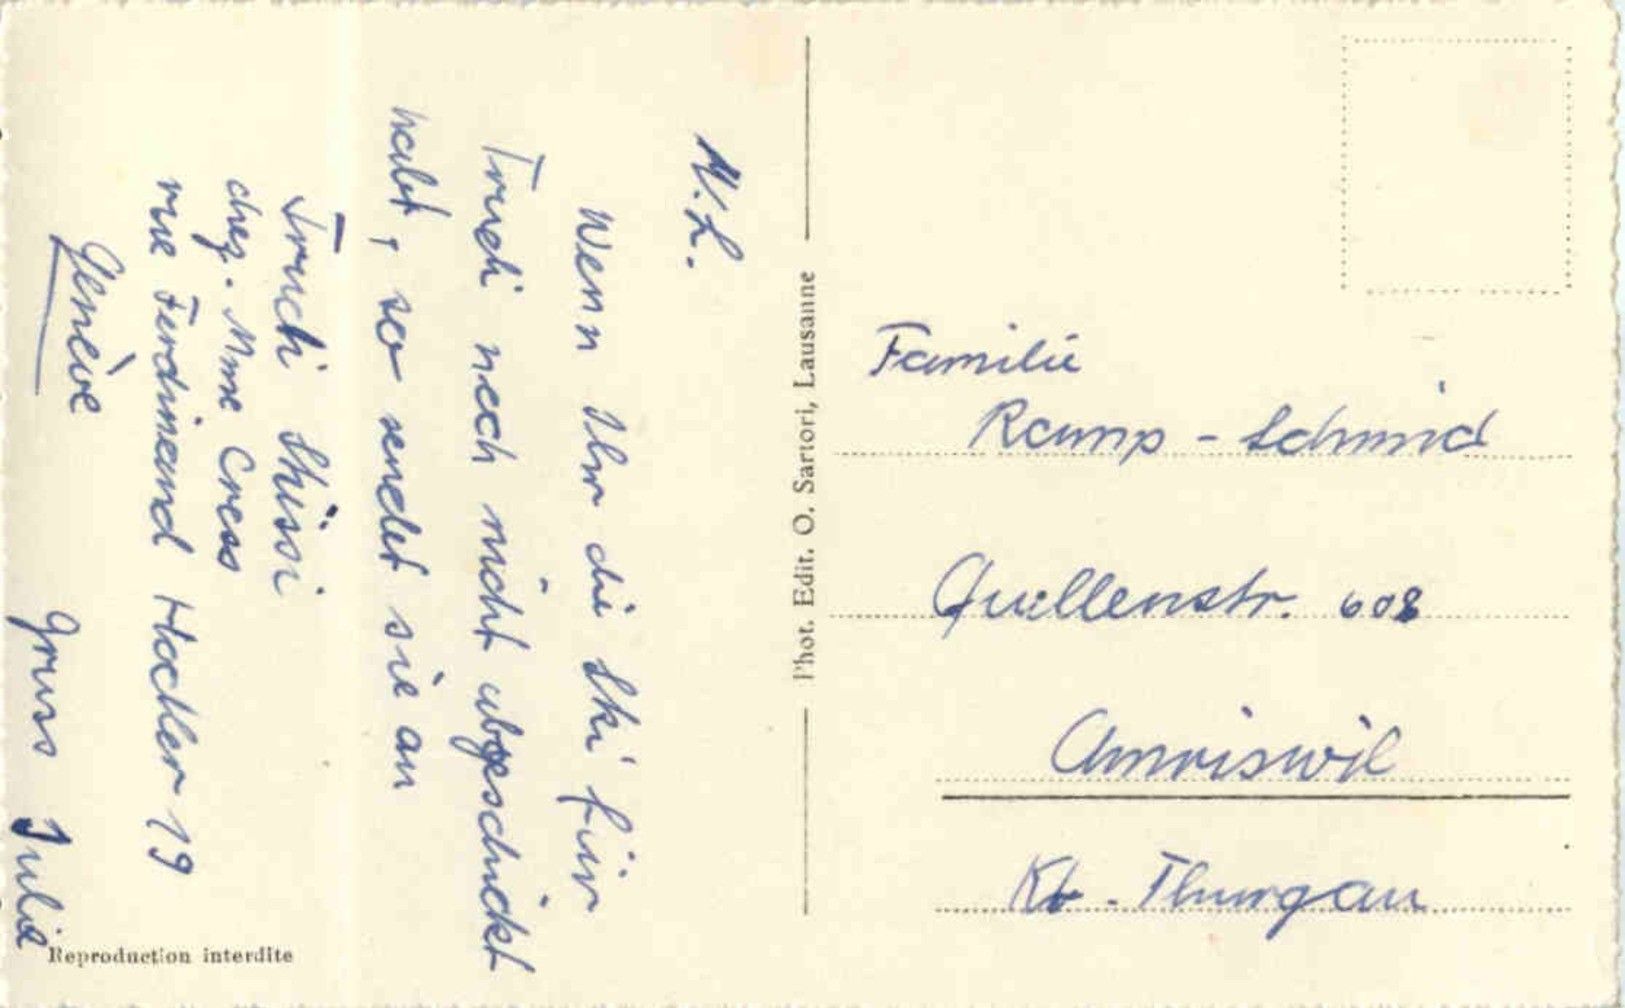 M. L.
Wenn Ihr die Ski für
Trudi noch nicht abgeschickt
habt, so sendet sie an
Trudi Stüssi
chez. Mme Cress
rue Ferdinand Hodler 19
Genève
Gruss Julia
Reproduction interdite
Phot. Edit. O. Sartori, Lausanne
Familie
Ramp - Schmid
Quellenstr. 608
Amriswil
Kt. Thurgau